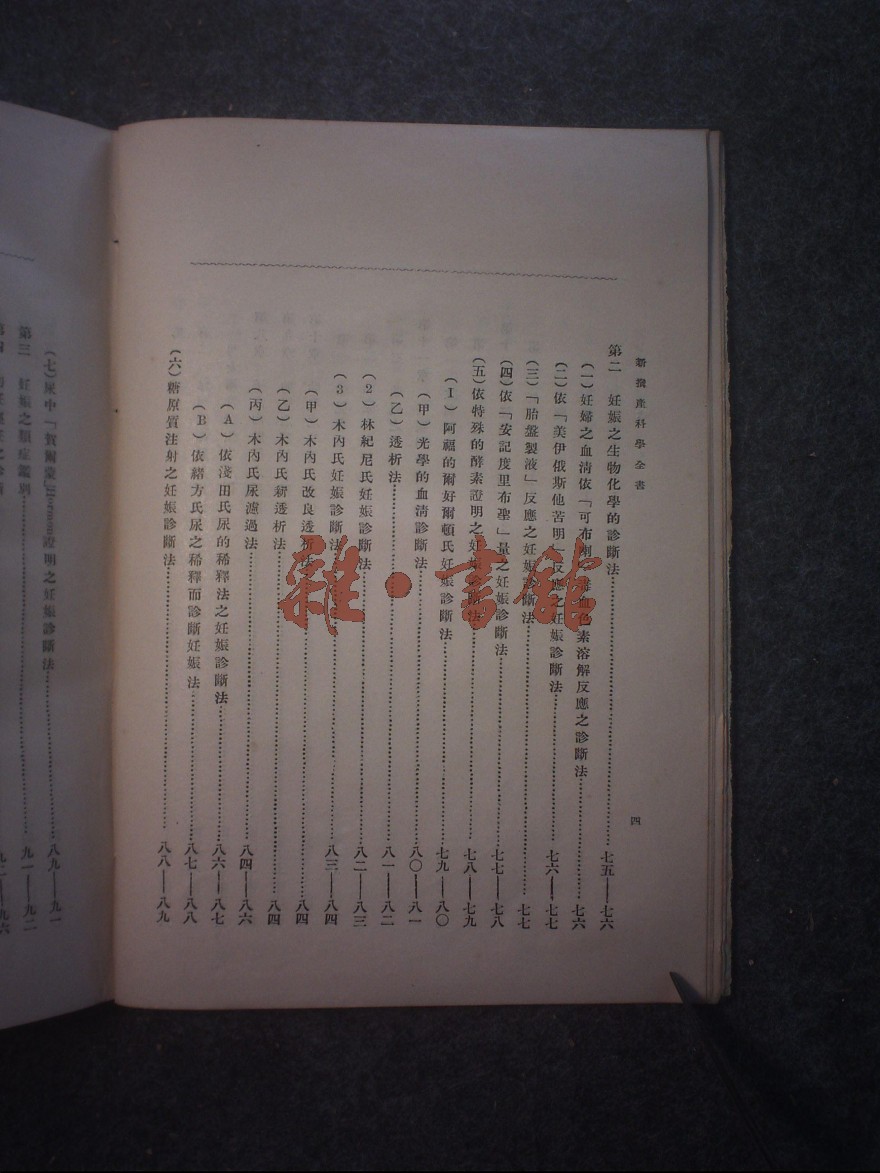 新撰產科學全書
四
第二 妊娠之生物化學的診斷法 七五——七六
(一)妊婦之血清依「可布剌 毒血色素溶解反應之診斷法 七六
(二)依「美伊俄斯他苦明」反應之妊娠診斷法 七六——七七
(三)「胎盤製液」反應之妊娠診斷法 七七
(四)依「安記度里布聖」量之妊娠診斷法 七七——七八
(五)依特殊的酵素證明之妊娠診斷法 七八——七九
(1)阿福的爾好爾頓氏妊娠診斷法 七九——八〇
(甲)光學的血清診斷法 八〇——八一
(乙)透析法 八一——八二
(2)林紀尼氏妊娠診斷法 八二——八三
(3)木內氏妊娠診斷法 八三——八四
(甲)木內氏改良透析法 八四
(乙)木內氏新透析法 八四
(丙)木內氏尿濾過法 八四——八六
(A)依淺田氏尿的稀釋法之妊娠診斷法 八六——八七
(B)依緒方氏尿之稀釋而診斷妊娠法 八七——八八
(六)糖原質注射之妊娠診斷法 八八——八九
(七)尿中「賀爾蒙」Hormon證明之妊娠診斷法 八九——九一
第三 妊娠之類症鑑別 九一——九二
第四 九二——九六
雜·書館